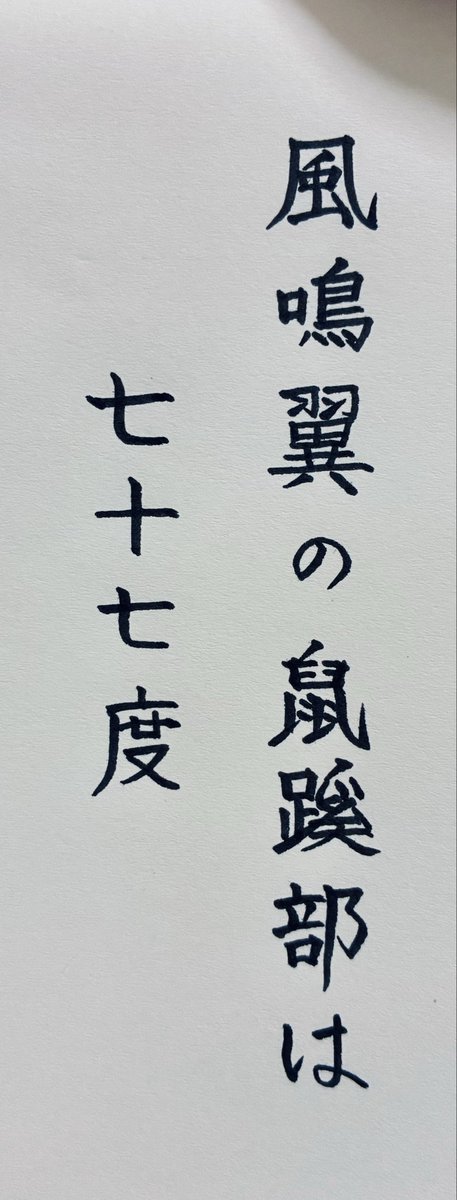 風鳴翼の鼠蹊部は
七十七度